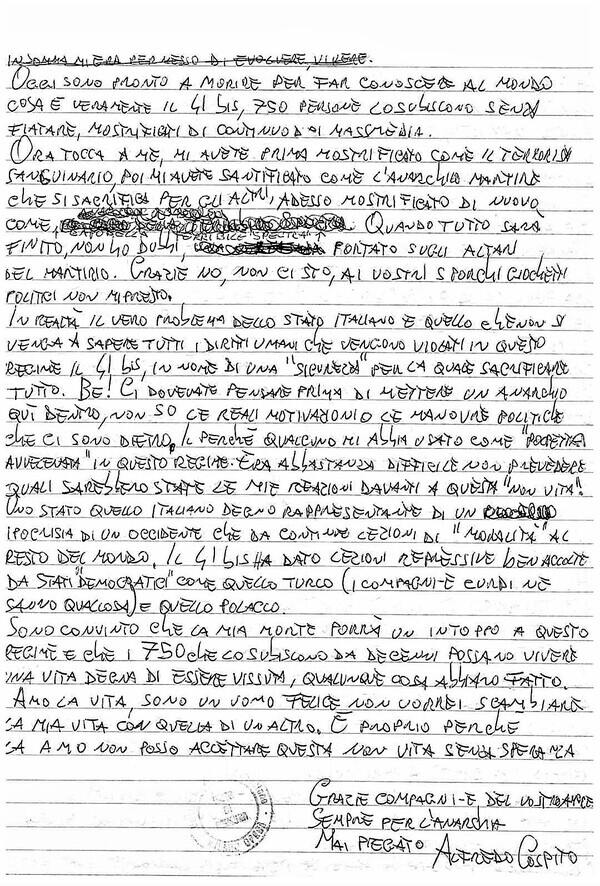 INSOMMA MI ERA PERMESSO DI EVOLVERE, VIVERE.
OGGI SONO PRONTO A MORIRE PER FAR CONOSCERE AL MONDO
COSA È VERAMENTE IL 41 BIS, 750 PERSONE LO SUBISCONO SENZA
FIATARE, MOSTRIFICATI DI CONTINUO DAI MASSMEDIA.
ORA TOCCA A ME, MI AVETE PRIMA MOSTRIFICATO COME IL TERRORISTA
SANGUINARIO, POI MI AVETE SANTIFICATO COME L'ANARCHICO MARTIRE
CHE SI SACRIFICA PER GLI ALTRI, ADESSO MOSTRIFICATO DI NUOVO
COME, QUANDO TUTTO SARÀ
FINITO, NON HO DUBBI, PORTATO SUGLI ALTARI
DEL MARTIRIO. GRAZIE NO, NON CI STO, AI VOSTRI SPORCHI GIOCHETTI
POLITICI NON MI PRESTO.
IN REALTÀ IL VERO PROBLEMA DELLO STATO ITALIANO È QUELLO CHE NON SI
VENGA A SAPERE TUTTI I DIRITTI UMANI CHE VENGONO VIOLATI IN QUESTO
REGIME IL 41 BIS, IN NOME DI UNA "SICUREZZA" PER LA QUALE SACRIFICARE
TUTTO. BE! CI DOVEVATE PENSARE PRIMA DI METTERE UN ANARCHICO
QUÌ DENTRO, NON SO LE REALI MOTIVAZIONI O LE MANOVRE POLITICHE
CHE CI SONO DIETRO, IL PERCHÈ QUALCUNO MI ABBIA USATO COME "POLPETTA
AVVELENATA" IN QUESTO REGIME. ERA ABBASTANZA DIFFICILE NON PREVEDERE
QUALI SAREBBERO STATE LE MIE REAZIONI DAVANTI A QUESTA "NON VITA".
UNO STATO QUELLO ITALIANO DEGNO RAPPRESENTANTE DI UN
IPOCRISIA DI UN OCCIDENTE CHE DA CONTINUE LEZIONI DI "MORALITÀ" AL
RESTO DEL MONDO. IL 41 BIS HA DATO LEZIONI REPRESSIVE BEN ACCOLTE
DA STATI "DEMOCRATICI" COME QUELLO TURCO (I COMPAGNI-E CURDI NE
SANNO QUALCOSA) E QUELLO POLACCO.
SONO CONVINTO CHE LA MIA MORTE PORRÀ UN INTOPPO A QUESTO
REGIME E CHE I 750 CHE LO SUBISCONO DA DECENNI POSSANO VIVERE
UNA VITA DEGNA DI ESSERE VISSUTA, QUALUNQUE COSA ABBIANO FATTO.
AMO LA VITA, SONO UN UOMO FELICE NON VORREI SCAMBIARE
LA MIA VITA CON QUELLA DI UN ALTRO. È PROPRIO PERCHÈ
LA AMO NON POSSO ACCETTARE QUESTA NON VITA SENZA SPERANZA
GRAZIE COMPAGNI-E DEL VOSTRO AMORE
SEMPRE PER L'ANARCHIA
MAI PIEGATO ALFREDO COSPITO